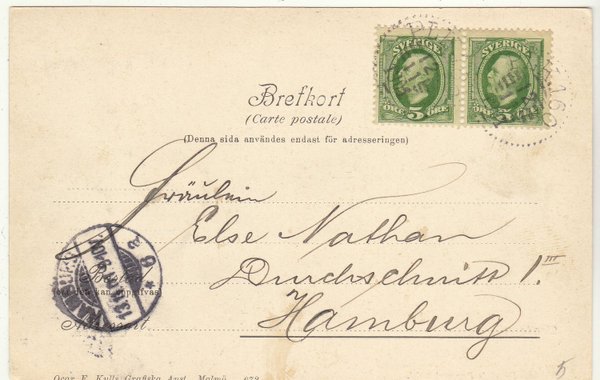 SVERIGE SVERIGE
ÖRE 5 ÖRE ÖRE 5 ÖRE
Brefkort
(Carte postale)
(Denna sida användes endast för adresseringen)
Fräulein
Else Nathan
Durchschnitt 1.III
Hamburg
HAMBURG
13.9.
Oscar F. Kulls Grafiska Anst. Malmö. 672